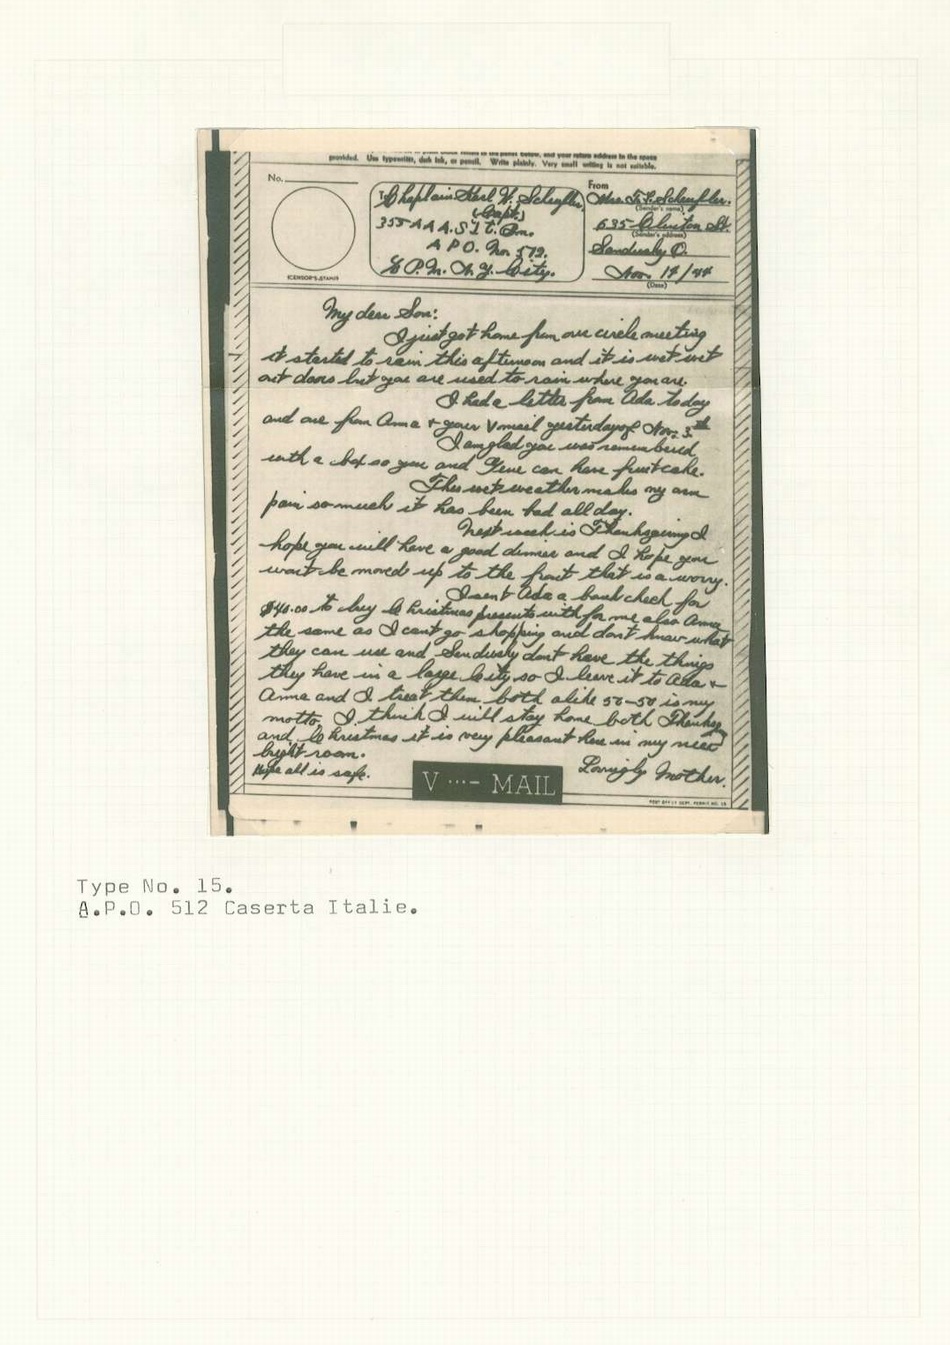 provided. Use typewriter, dark ink, or pencil. Write plainly. Very small writing is not suitable.
No.
(CENSOR'S STAMP)
To Chaplain Karl W. Scheufler,
(Capt.)
355 A A A. S L t. Bn.
A P O. No. 512.
% P. M. N. Y. City.
From
Mrs. F. F. Scheufler.
(Sender's name)
635 Clinton St.
(Sender's address)
Sandusky O.
Nov. 14/44
(Date)
My dear Son:
I just got home from our circle meeting
it started to rain this afternoon and it is wet wet
out doors but you are used to rain where you are.
I had a letter from Ada today
and one from Anna + your V mail yesterday of Nov. 3th
I am glad you was remembered
with a box so you and Gene can have fruit cake.
This wet weather makes my arm
pain so much it has been bad all day.
Next week is Thanksgiving I
hope you will have a good dinner and I hope you
wont be moved up to the front that is a worry.
I sent Ada a bank check for
$40.00 to buy Christmas presents with for me also Anna
the same as I cant go shopping and dont know what
they can use and Sandusky dont have the things
they have in a large City so I leave it to Ada +
Anna and I treat them both alike 50-50 is my
motto. I think I will stay home both
and Christmas it is very pleasant here in my
bright room.
Hope all is safe.
Lovingly Mother.
V ···– MAIL
POST OFFICE DEPT. PERMIT NO.
Type No. 15.
A.P.O. 512 Caserta Italie.